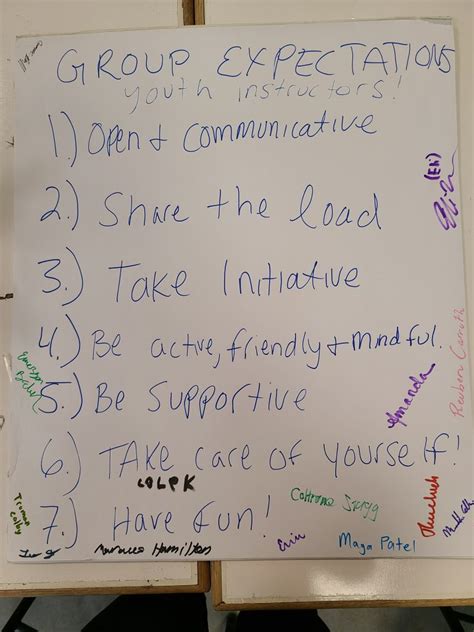 GROUP EXPECTATIONS
youth instructors!
1.) Open & communicative
2.) Share the load
(Eli)
3.) Take Initiative
4.) Be active, friendly & mindful.
5.) Be Supportive
Amanda
6.) TAKE care of yourself!
COLPK
Truman
Colby
7.) Have fun!
Coltrane
Hamilton
Erin
Maya Patel